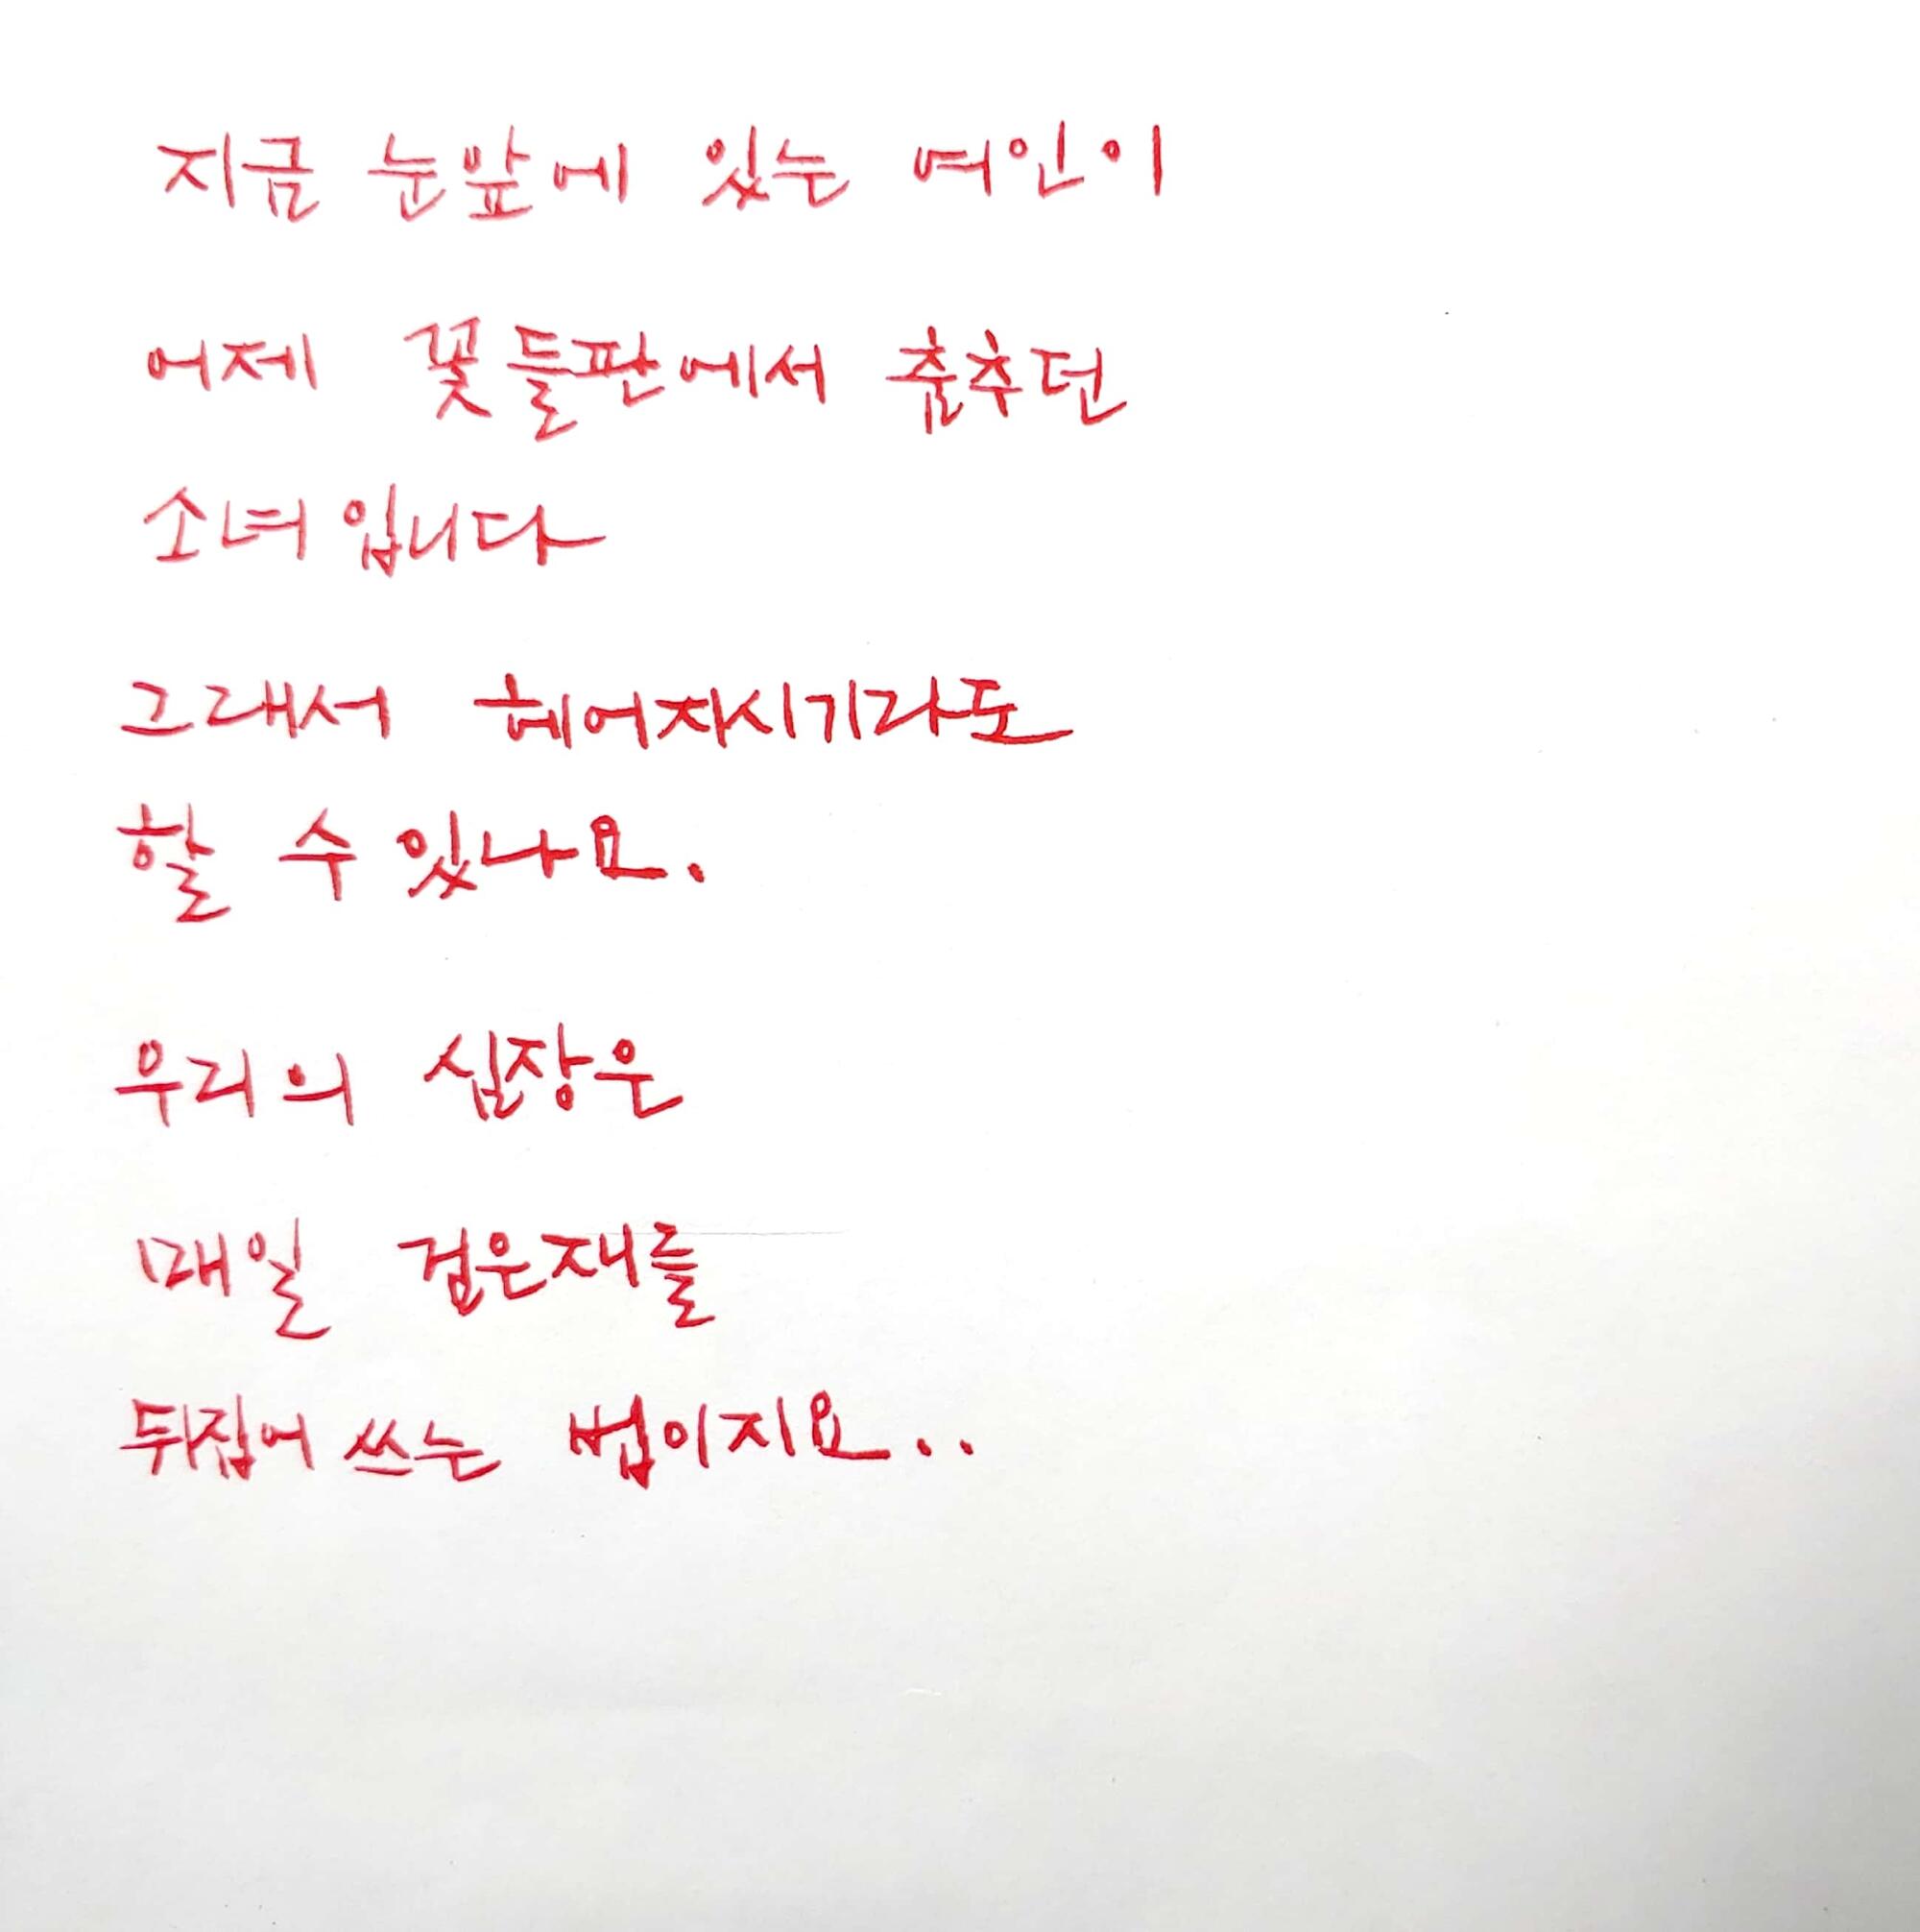 지금 눈앞에 있는 여인이
어제 꽃들판에서 춤추던
소녀입니다
그래서 헤어자시기라도
할 수 있나요.
우리의 심장은
매일 검은재들
뒤집어 쓰는 법이지요..